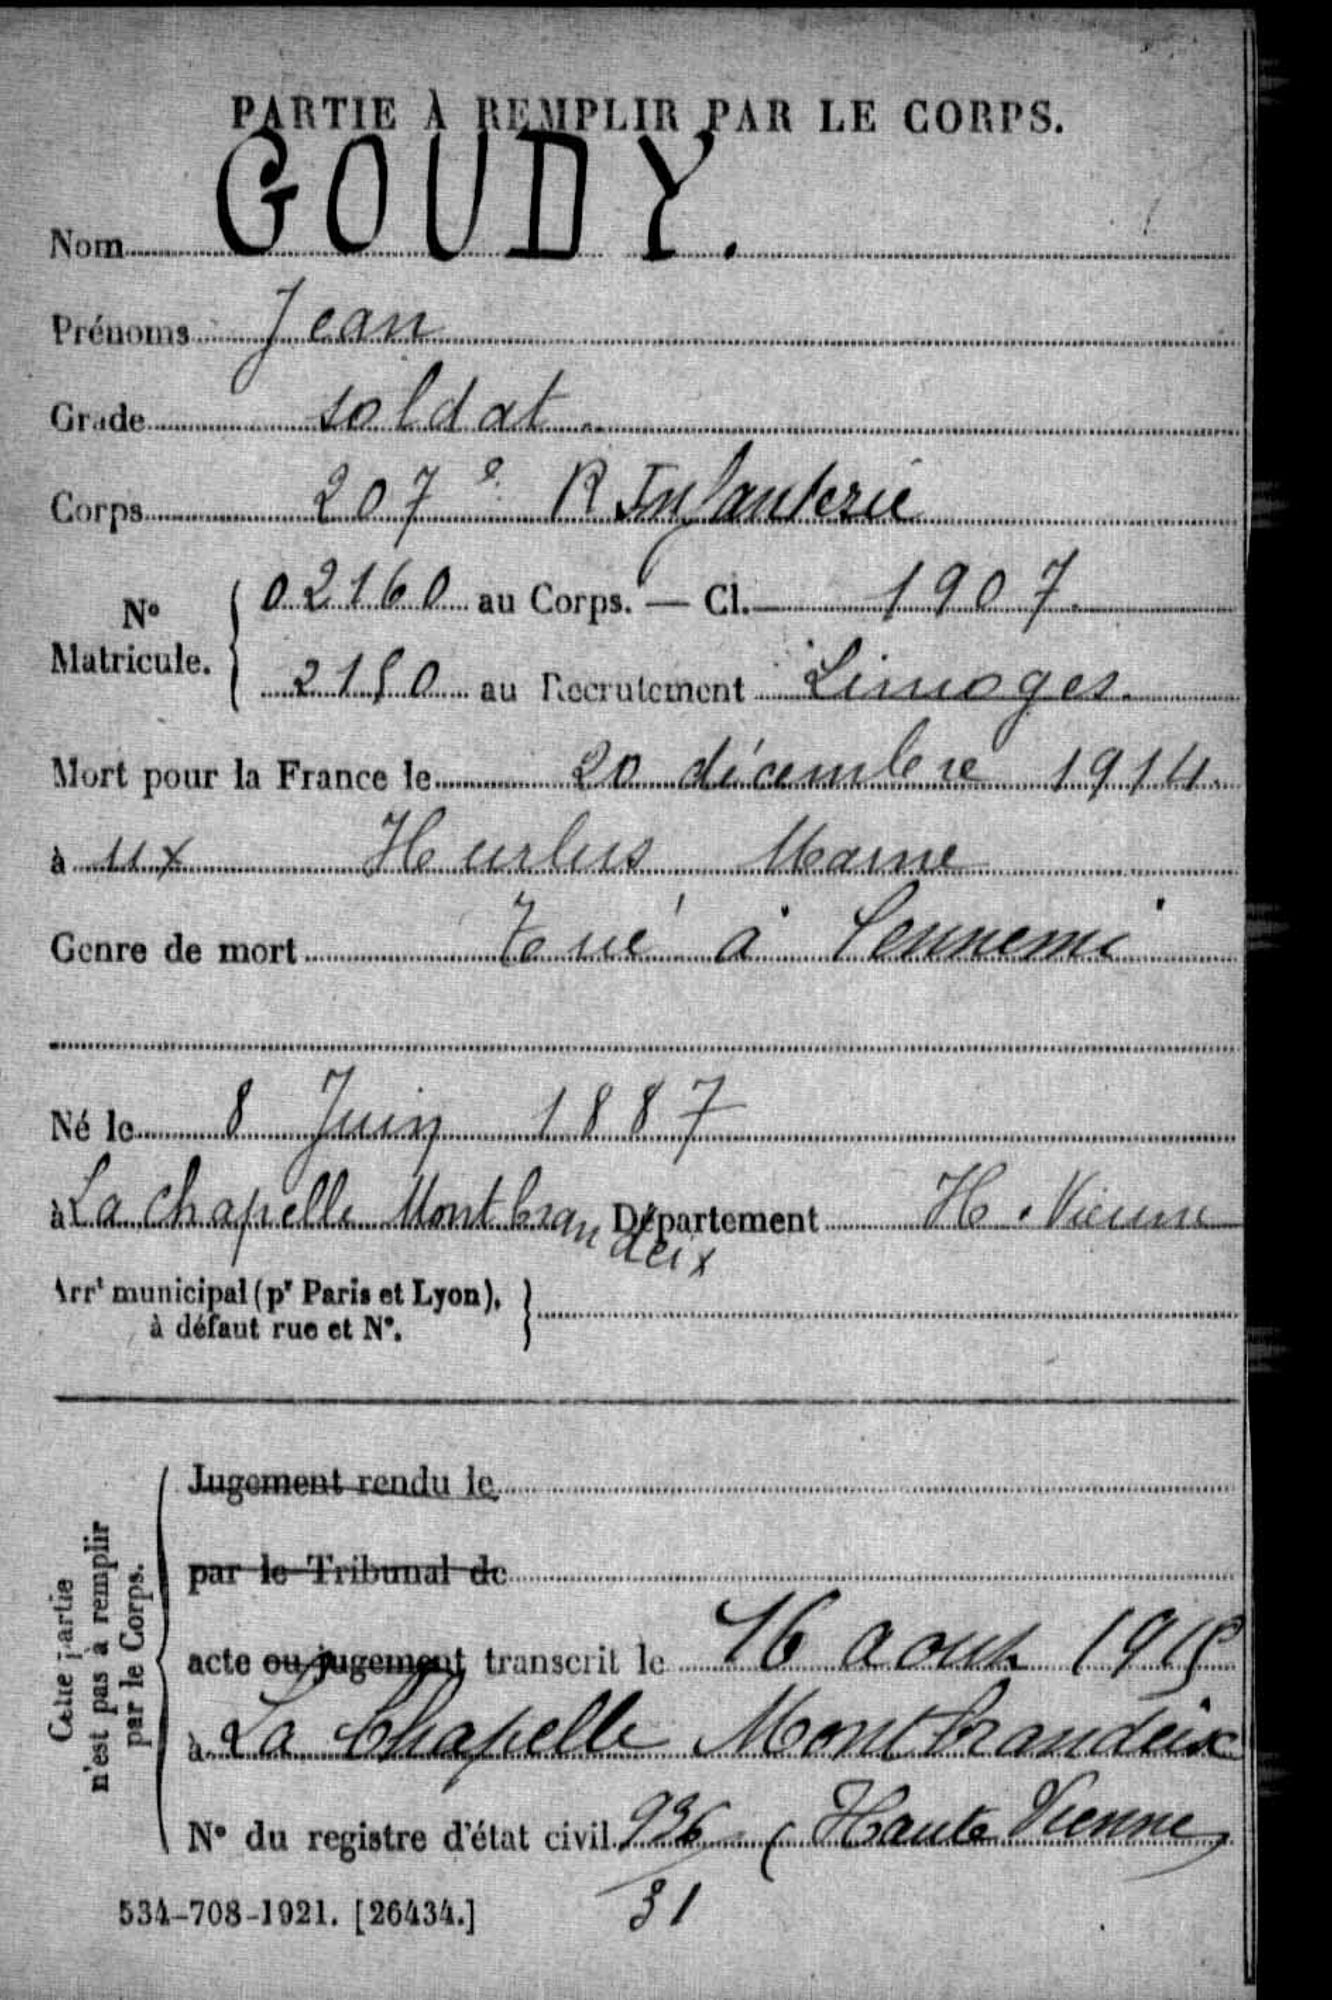 PARTIE À REMPLIR PAR LE CORPS.
Nom GOUDY.
Prénoms Jean
Grade soldat
Corps 207e R Infanterie
N° Matricule. 02160 au Corps. — Cl. 1907
2150 au Recrutement Limoges
Mort pour la France le 20 décembre 1914
à Hurlus Marne
Genre de mort Tué à l'ennemi
Né le 8 Juin 1887
à La Chapelle Montbrandeix Département H. Vienne
Arrt municipal (pr Paris et Lyon), à défaut rue et N°.
Cette partie n'est pas à remplir par le Corps.
Jugement rendu le
par le Tribunal de
acte ou jugement transcrit le 16 aout 1915
à La Chapelle Montbrandeix
N° du registre d'état civil 936 (Haute Vienne)
31
534-708-1921. [26434.]